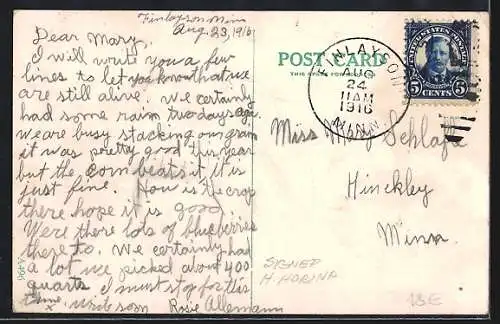 Finlayson Minn
Aug. 23, 1916
Dear Mary,
I will write you a few
lines to let you know that we
are still alive. We certainly
had some rain two days ago.
We are busy stacking our grain
it was pretty good this year
but the corn beats it it is
just fine. How is the crop
there hope it is good
Were there lots of blueberries
there to. We certainly had
a lot we picked about 400
quarts I must stop for this
time. write soon
Rosie Allemann
A-996
POST CARD
FINLAYSON
AUG
24
11AM
1916
MINN.
UNITED STATES POSTAGE
5 CENTS 5
Miss Mary
Hinckley
Minn
SIGNED
H. HORINA